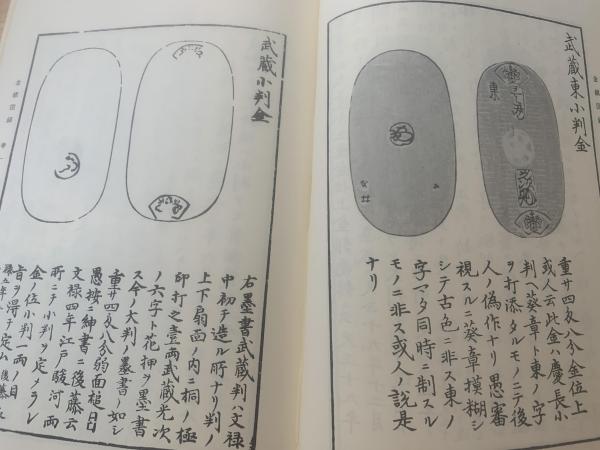 武蔵東小判金
東
重廿四匁八分金位上
或人云此金ハ慶長小
判ヘ葵章ト東ノ字
ヲ打添タルモノニテ後
人ノ偽作ナリ愚審
視スルニ葵章模糊ニ
シテ古色ニ非ス東ノ
字マタ同時ニ制スル
モノニ非ス或人ノ説是
ナリ
武蔵小判金
右墨書武蔵判ハ文禄
中初テ造ル所ナリ判ノ
上下扇面ノ内ニ桐ノ極
印打之壹両武蔵光次
ノ六字ト花押ヲ墨書
ス今ノ大判ノ墨書ノ如シ
重廿四匁八分弱面槌目
愚按ニ紳書ニ後藤云
文禄四年江戸駿河両
所ニテ小判ヲ定メラレ
金ノ位小判一両ノ目
旨ヲ得テ定ム後藤
金銀図録 巻一